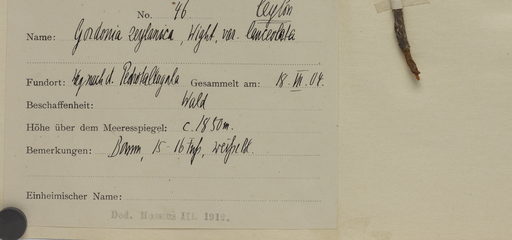 No. 46 Ceylon
Name: Gordonia zeylanica, Wight, var. lanceolata
Fundort: Weg nach d. Pedrotallagala Gesammelt am: 18. VII. 07.
Beschaffenheit: Wald
Höhe über dem Meeresspiegel: c. 1850 m.
Bemerkungen: Baum, 15-16 Fuß,
Einheimischer Name:
Ded. III. 1912.